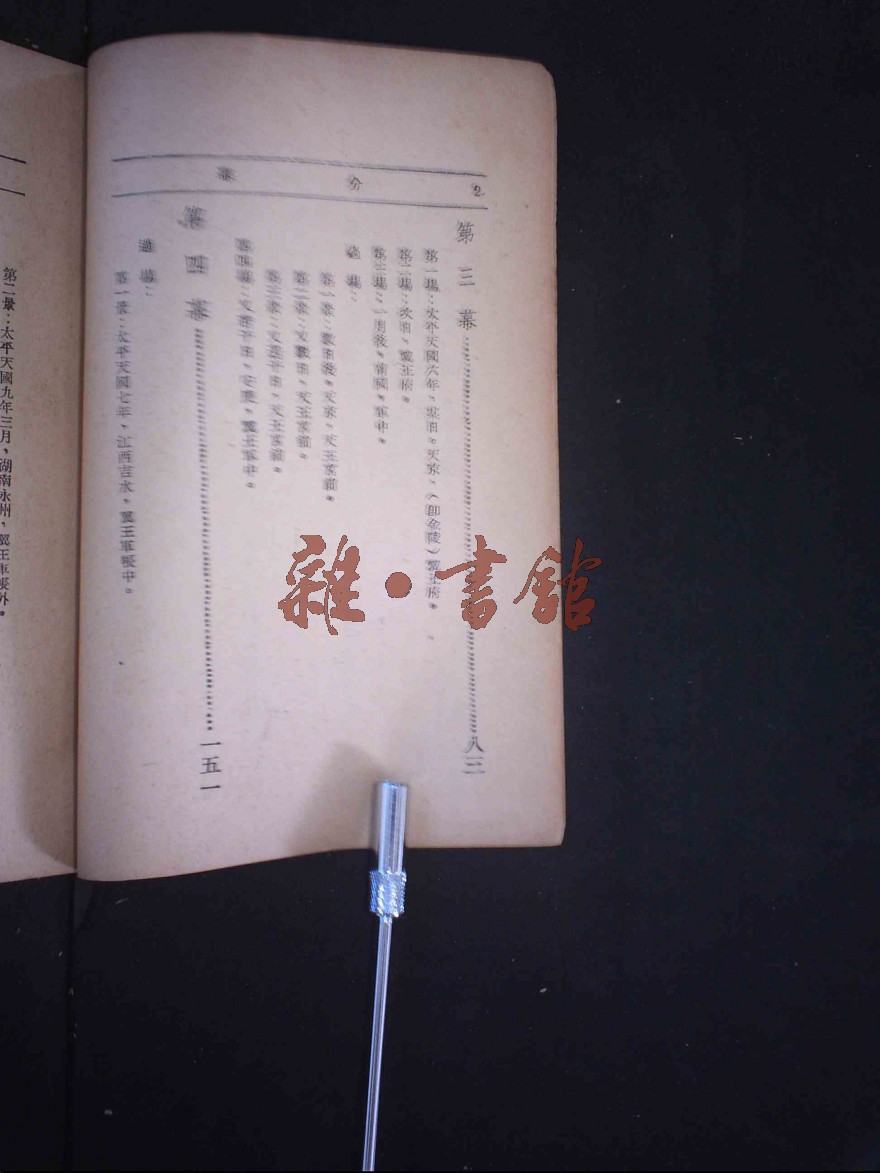 2 分 幕
第三幕……八三
第一場：太平天國六年，某日。天京，（即金陵）翼王府。
第二場：次日，翼王府。
第三場：一月後，前線，軍中。
過場：
第一景：數日後，天京，天王京鎬。
第二景：又數日，天王京鎬。
第三景：又若干日，天王京鎬。
第四場：又若干日，安慶，翼王軍中。
第四幕……一五一
過場：
第一景：太平天國七年，江西吉水，翼王軍帳中。
第二景：太平天國九年三月，湖南永州，翼王軍帳外。
雜·書館